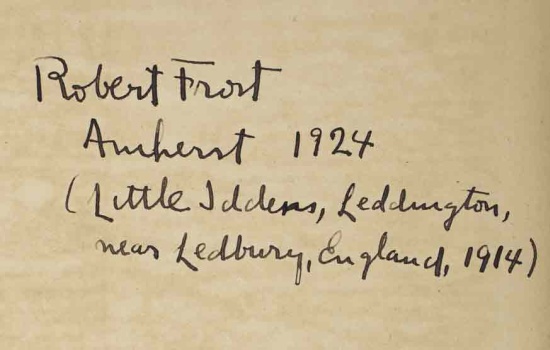 Robert Frost
Amherst 1924
(Little Iddens, Leddington,
near Ledbury, England, 1914)